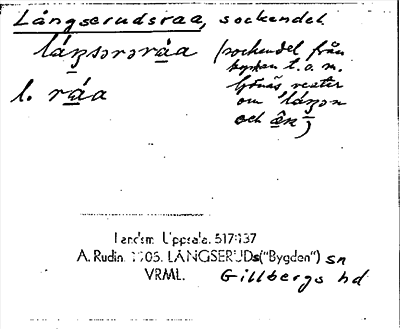 Långserudsraa, sockendel
láŋsərəráa (sockendel från
kyrkan t.o.m.
l. ráa
väster
om láŋən
och ån)
Landsm. Uppsala. 517:137
A. Rudin. 1905. LÅNGSERUDs("Bygden") sn
VRML. Gillbergs hd